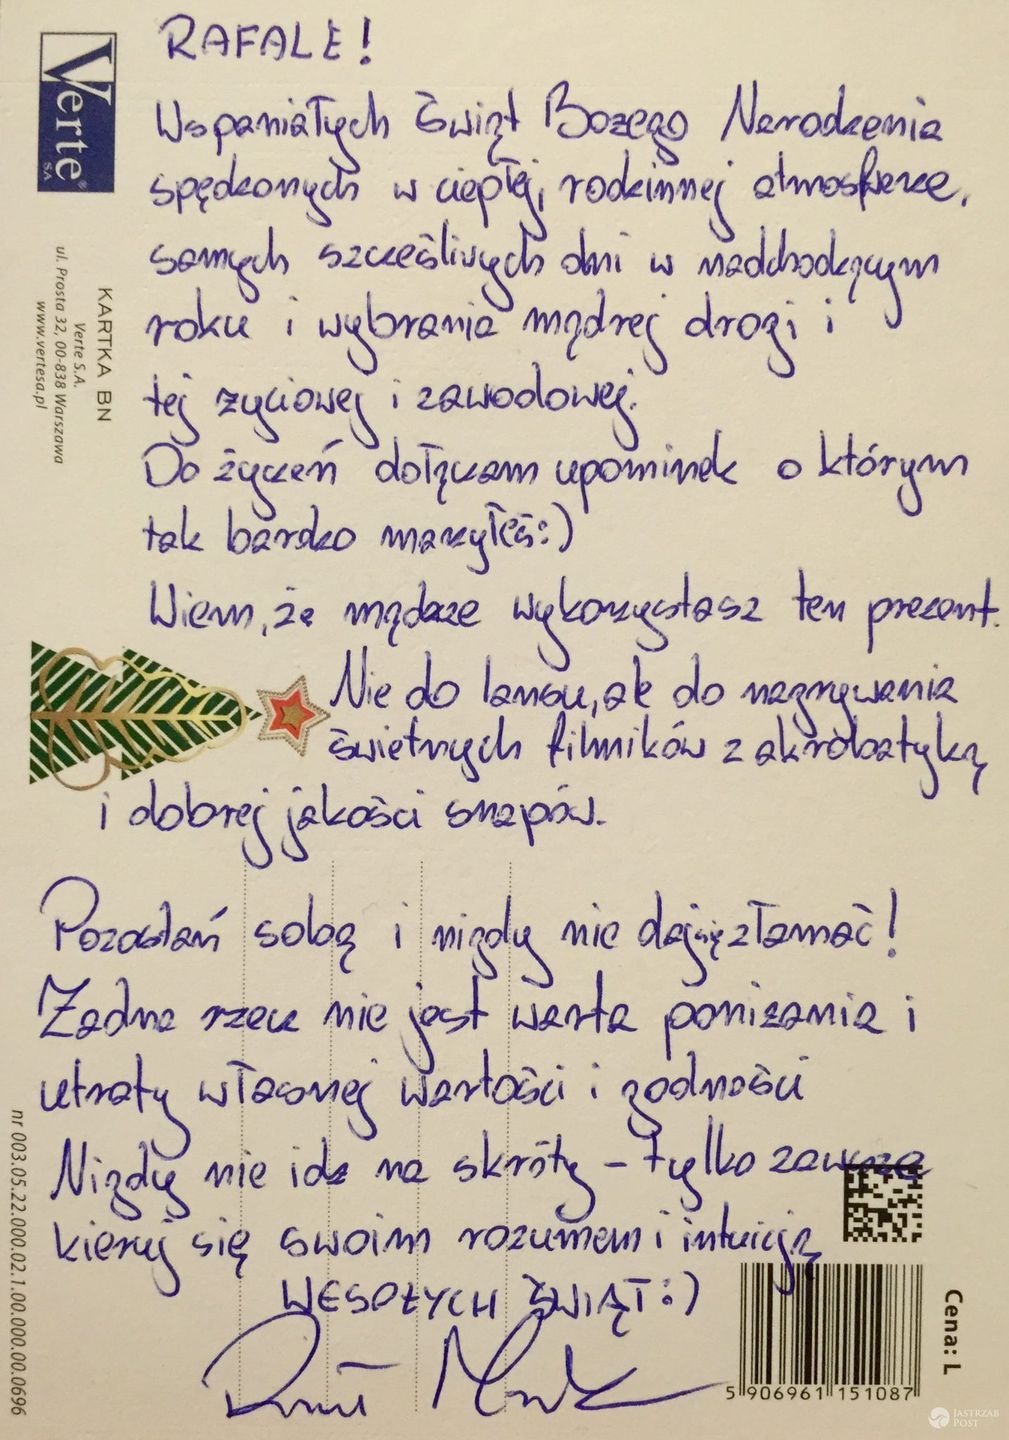 RAFALE!
Wspaniałych Świąt Bożego Narodzenia
spędzonych w ciepłej, rodzinnej atmosferze,
samych szczęśliwych dni w nadchodzącym
roku i wybrania mądrej drogi i
tej życiowej i zawodowej.
Do życzeń dołączam upominek o którym
tak bardzo marzyłeś:)
Wiem, że mądrze wykorzystasz ten prezent.
Nie do lansu, ale do nagrywania
świetnych filmików z akrobatyką
i dobrej jakości snapów.
Pozostań sobą i nigdy nie daj się złamać!
Żadna rzecz nie jest warta poniżania i
utraty własnej wartości i godności
Nigdy nie idź na skróty – tylko zawsze
kieruj się swoim rozumem i intuicją
WESOŁYCH ŚWIĄT:)
Verte®
SA
KARTKA BN
Verte S.A.
ul. Prosta 32, 00-838 Warszawa
www.vertesa.pl
nr 003.05.22.000.02.1.00.000.00.0696
Cena: L
5 906961 151087
JASTRZĄB
POST